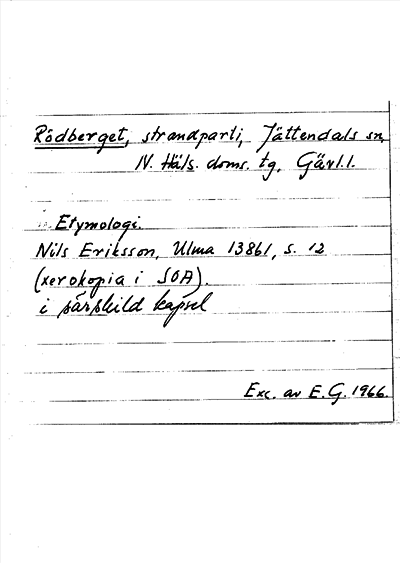 Rödberget, strandparti, Jättendals sn,
N. Häls. doms. tg, Gävl.l.
Etymologi.
Nils Eriksson, Ulma 13861, s. 12
(xerokopia i SOA).
i särskild kapsel
Exc. av E.G. 1966.